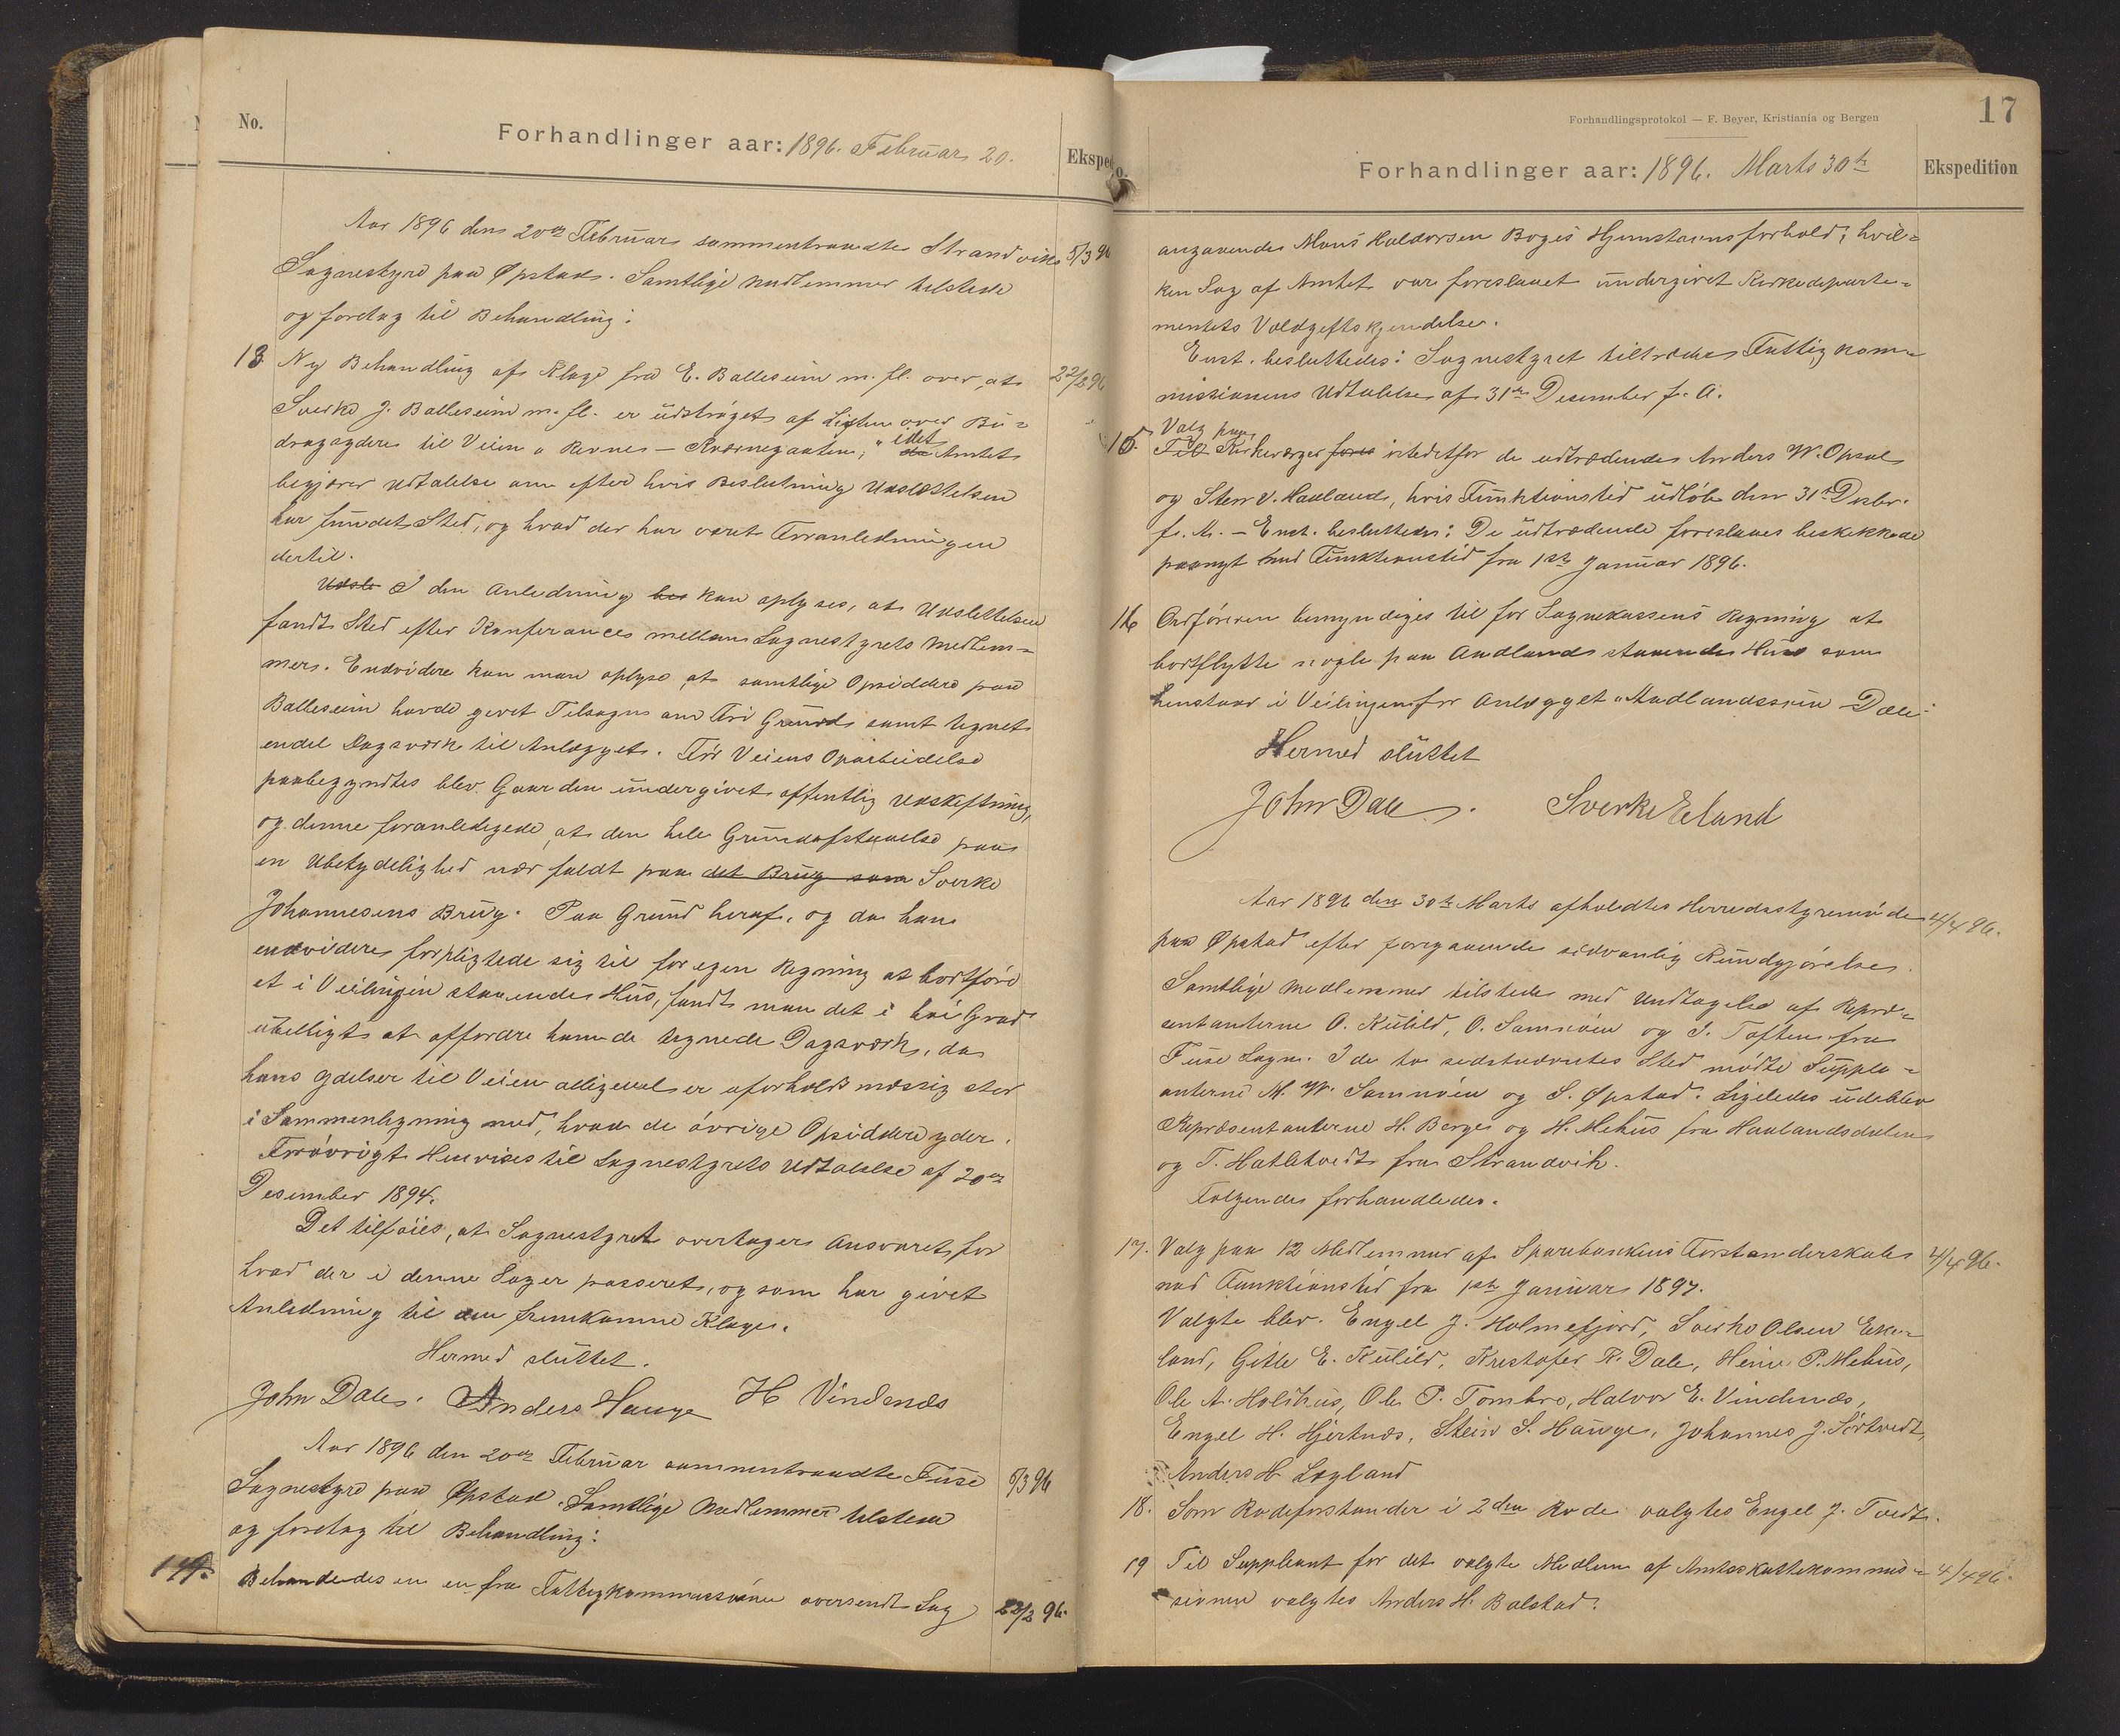 No.
Forhandlinger aar: 1896. Februar 20.
Eksped
Aar 1896 den 20de Februar sammentraadte Strandviks 5/3 96
Sognestyre paa Øpstad. Samtlige Medlemmer tilstede
og foretog til Behandling:
13 Ny Behandling af Klage fra E. Balleseim m. fl. over, at 22/2 96
Sverke J. Balleseim m. fl. er udstrøget af Listen over Bi=
dragydere til Veien "Revnes – Kvernegaaten," idet Amtet
begjærer Udtalelse om efter hvis Beslutning Udslettelsen
har fundet Sted, og hvad der har været Foranledningen
dertil.
Udsle I den Anledning bes kan oplyses, at Udslettelsen
fandt Sted efter Konferance mellem Sognestyrets Medlem=
mer. Endvidere kan man oplyse at samtlige Opsiddere paa
Balleseim havde givet Tilsagn om Fri Grund samt tegnet
endel Dagsværk til Anlægget. Før Veiens Oparbeidelse
paabegyndtes blev Gaarden undergivet offentlig Udskiftning,
og denne foranledigede, at den hele Grundafstaaelse paa
en Ubetydelighed nær faldt paa det Brug som Sverke
Johannesens Brug. Paa Grund heraf, og da han
endvidere forpligtede sig til for egen Regning at bortføre
et i Veilinjen staaende Hus, fandt man det i høi Grad
ubilligt at affordre ham de tegnede Dagsværk, da
hans Ydelser til Veien alligevel er uforholdsmæssig stor
i Sammenligning med, hvad de øvrige Opsiddere yder.
Forøvrigt Henvises til Sognestyrets Udtalelse af 20de
Desember 1894.
Det tilføies, at Sognestyret overtager Ansvaret for
hvad der i denne Sag er passeret, og som har givet
Anledning til den fremkomne Klage.
Hermed sluttet.
John Dale. Anders Hauge H Vindenes
Aar 1896 den 20de Februar sammentraadte Fuse 5/3 96
Sognestyre paa Øpstad. Samtlige Medlemmer tilstede
og foretog til Behandling:
14. Behandledes en en fra Fattigkommissionen oversendt Sag 22/2 96.
Forhandlingsprotokol — F. Beyer, Kristiania og Bergen
17
o.
Forhandlinger aar: 1896. Marts 30te
Ekspedition
angaaende Mons Haldorsen Boges Hjemstavnsforhold, hvil=
ken Sag af Amtet var foreslaaet undergivet Kirkedeparte=
mentets Voldgiftskjendelse.
Enst. besluttedes: Sognestyret tiltræder Fattigkom=
missionens Udtalelse af 31te Desember f. A.
Valg paa
15. Til Kirkeværger fores istedetfor de udtrædende Anders W. Opsal
og Sten V. Havland, hvis Funktionstid udløb den 31te Desbr.
f. A. – Enst. besluttedes: De udtrædende foreslaaes beskikkede
paanyt med Funktionstid fra 1ste Januar 1896.
16 Ordføreren bemyndiges til for Sognekassens Regning at
bortflytte nogle paa Aadland staaende Huse som
henstaar i Veilinjen for Anlægget "Aadlandssjøen – Dale"
Hermed sluttet
John Dale. Sverke Eeland
Aar 1896 den 30te Marts afholdtes Herredsstyremøde 4/4 96.
paa Øpstad efter foregaaende sedvanlig Kundgjørelse.
Samtlige Medlemmer tilstede med Undtagelse af Repræ=
sentanterne O. Kulild, O. Samnøen og J. Toften fra
Fuse Sogn. I de to sidstnævntes Sted mødte Supple=
anterne M. W. Samnøen og S. Øpstad. Ligeledes udeblev
Repræsentanterne H. Berge og H. Mehus fra Haalandsdalen
og T. Hatletvedt fra Strandvik.
Følgende forhandledes.
17. Valg paa 12 Medlemmer af Sparebankens Forstanderskab 4/4 96.
med Funktionstid fra 1ste Januar 1897.
Valgte blev. Engel J. Holmefjord, Sverke Olsen Eke=
land, Gitle E. Kulild, Kristofer K. Dale, Heine P. Mehus,
Ole A. Holdhus, Ole P. Tombre, Halvor E. Vindenes,
Engel H. Hjertnes, Stein S. Hauge, Johannes J. Sørtvedt,
Anders H. Lægland
18. Som Rodeforstander i 2den Rode valgtes Engel J. Tvedt.
19 Til Suppleant for det valgte Medlem af Amtsskattekommis= 4/4 96.
sionen valgtes Anders H. Bolstad.